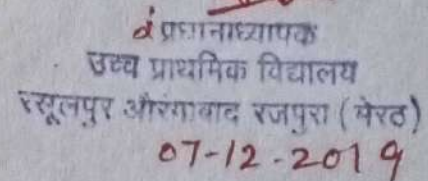 प्रधानाध्यापक
उच्च प्राथमिक विद्यालय
रसूलपुर औरंगाबाद रजपुरा (मेरठ)
07-12-2019